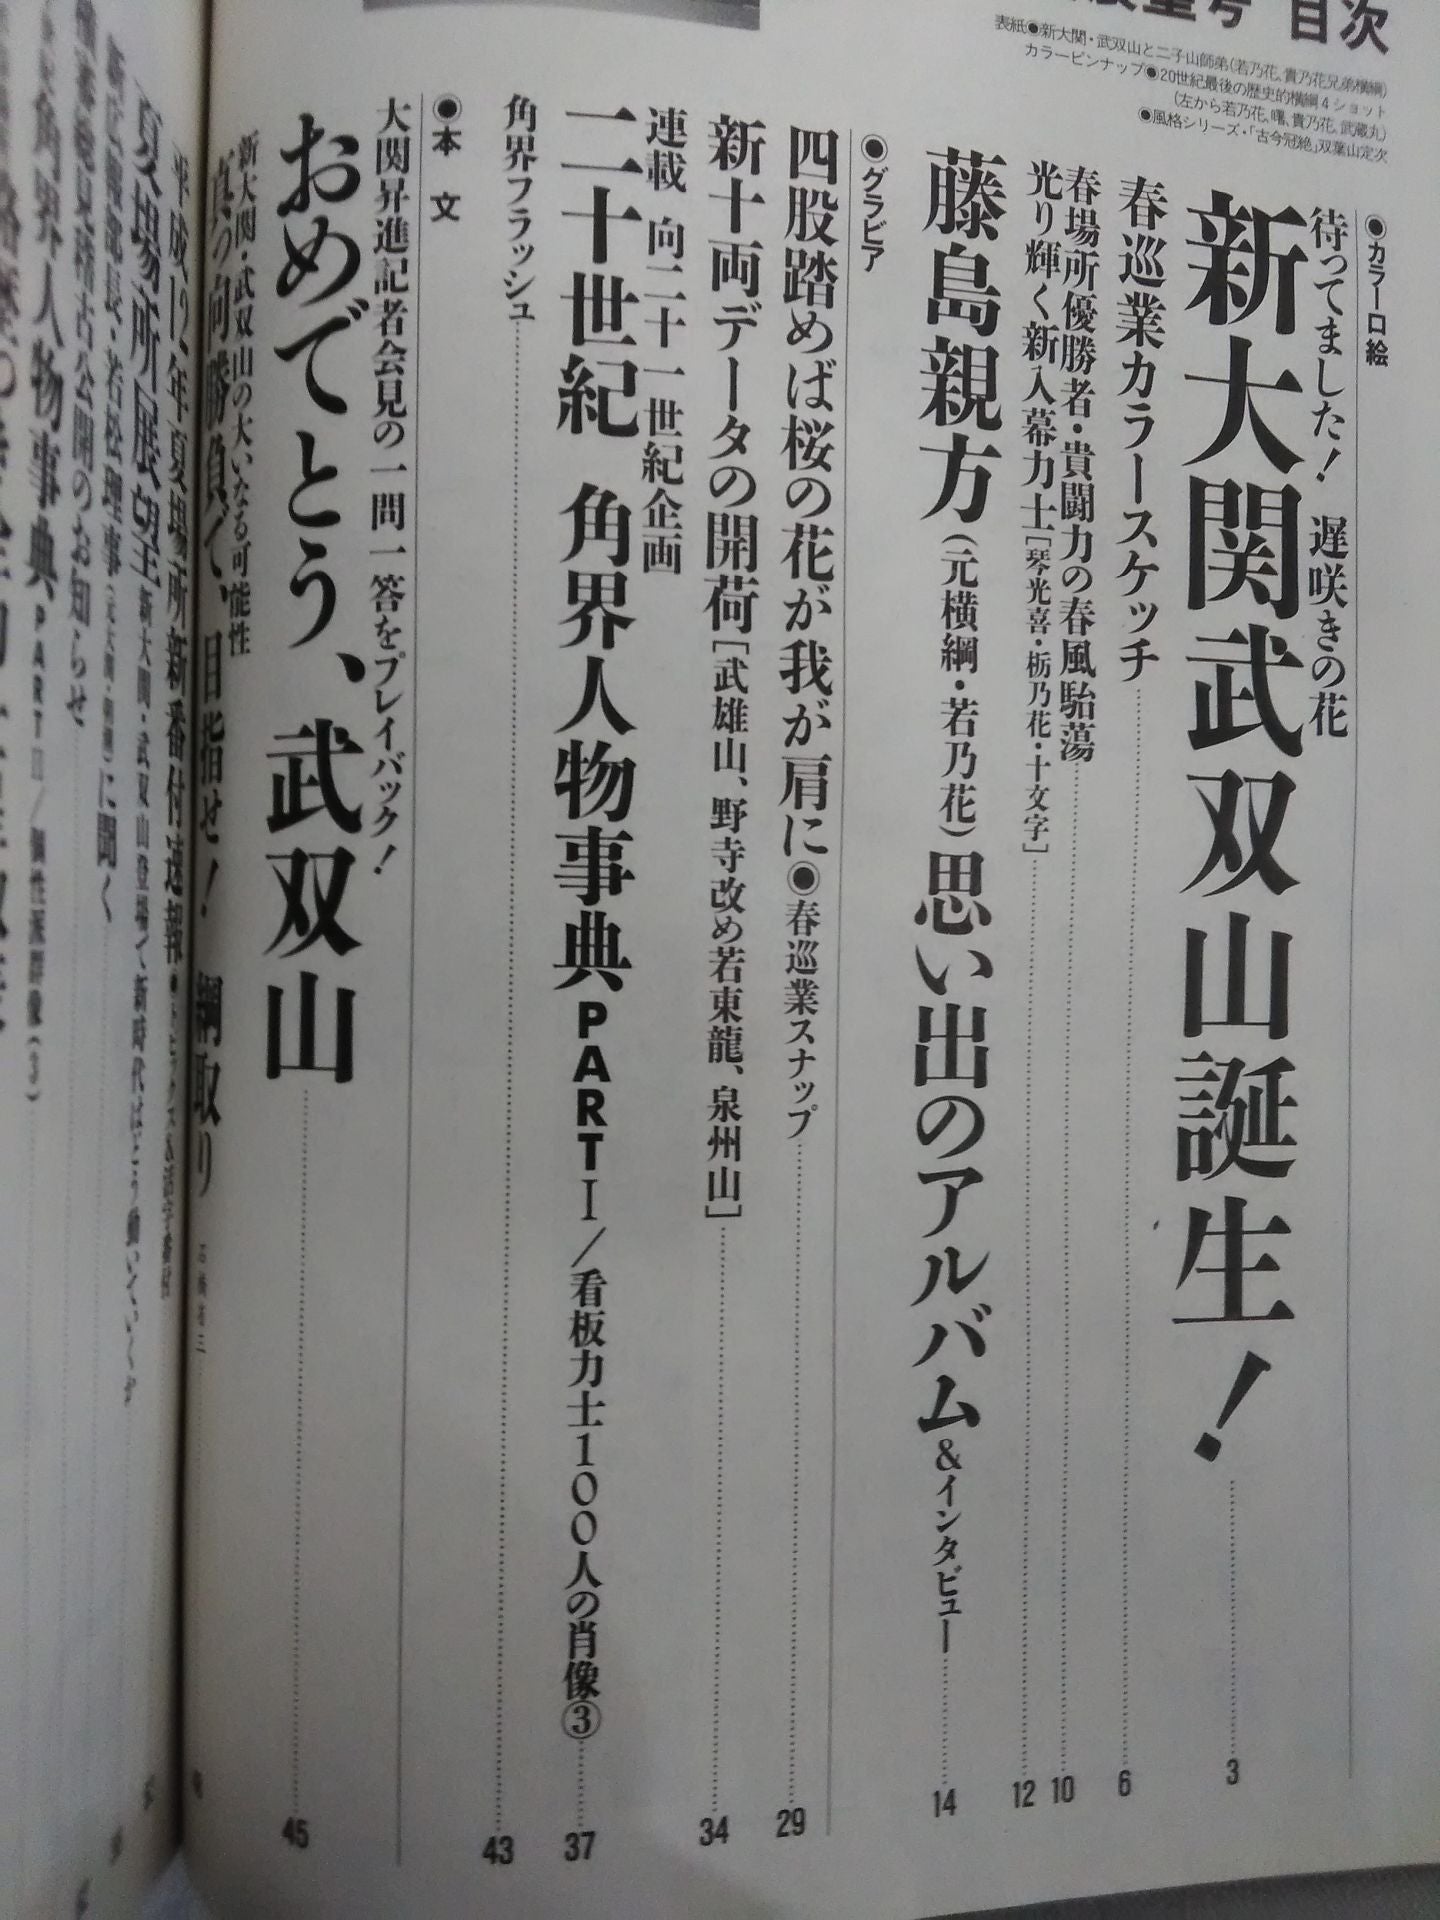 目次
表紙●新大関・武双山と二子山師弟(若乃花、貴乃花兄弟横綱)
カラーピンナップ●20世紀最後の歴史的横綱4ショット
(左から若乃花、曙、貴乃花、武蔵丸)
●風格シリーズ・「古今冠絶」双葉山定次
●カラー口絵
待ってました! 遅咲きの花
新大関武双山誕生! 3
春巡業カラースケッチ 6
春場所優勝者・貴闘力の春風駘蕩 10
光り輝く新入幕力士[琴光喜・栃乃花・十文字] 12
藤島親方(元横綱・若乃花)思い出のアルバム&インタビュー 14
●グラビア
四股踏めば桜の花が我が肩に●春巡業スナップ 29
新十両データの開荷[武雄山、野寺改め若東龍、泉州山] 34
連載 向二十一世紀企画
二十世紀 角界人物事典PART I/看板力士100人の肖像③ 37
角界フラッシュ 43
●本文
大関昇進記者会見の一問一答をプレイバック!
おめでとう、武双山 45
新大関・武双山の大いなる可能性
真っ向勝負で、目指せ! 綱取り
平成12年夏場所新番付速報
夏場所展望 新大関・武双山登場で新時代はどう動いていくか
に聞く
稽古公開のお知らせ
角界人物事典PART II/個性派群像(3)